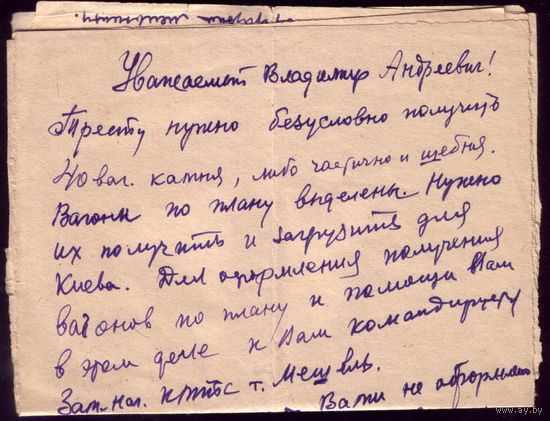 Уважаемый Владимир Андреевич!
Тресту нужно безусловно получить
40 ваг. камня, либо частично и щебня.
Вагоны по плану выделены. Нужно
их получить и загрузить для
Киева. Для оформления получения
вагонов по плану и помощи Вам
в этом деле к Вам командирует
Зам. нач. т.
Вами не оформлено
www.ay.by